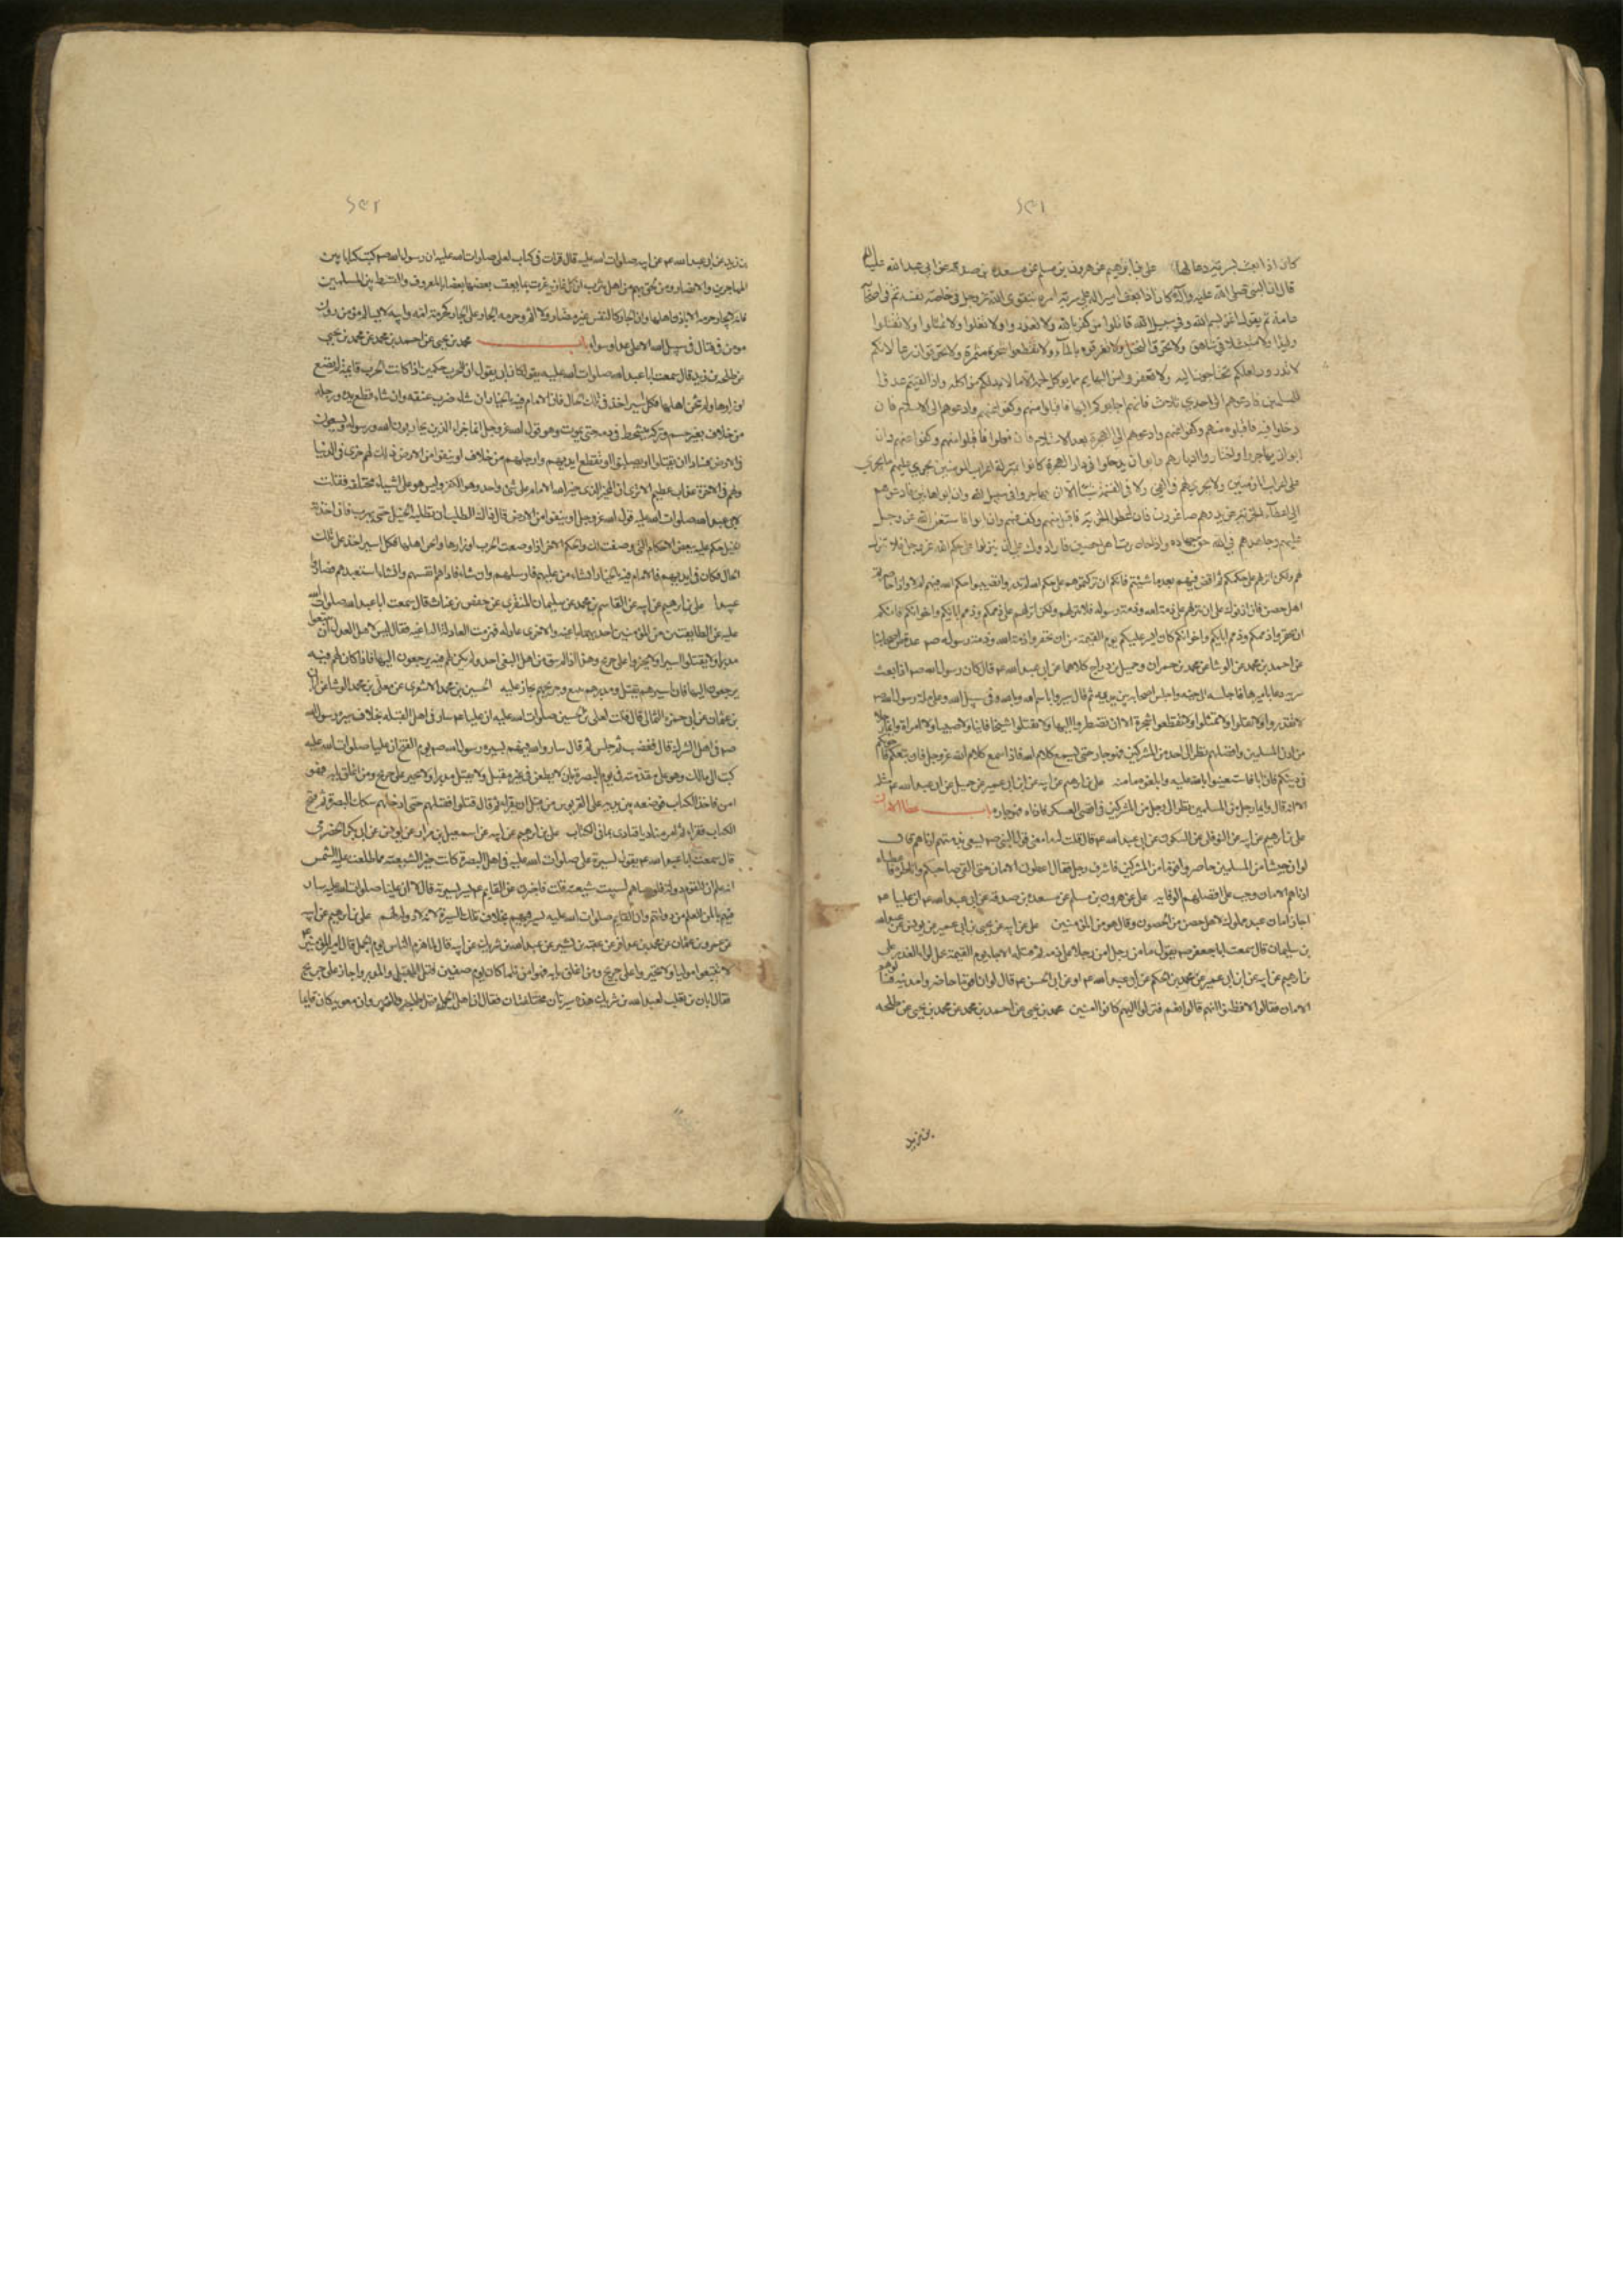 ٢٥١
كان اذا بعث بسرية دعا لها علي بن ابرهيم عن هرون بن مسلم عن مسعدة بن صدقة عن ابي عبد الله عليه السلم
قال ان النبي صلى الله عليه وآله كان اذا بعث اميرا له على سرية امره بتقوى الله عز وجل في خاصة نفسه ثم في اصحابه
عامة ثم يقول اغز بسم الله وفي سبيل الله قاتلوا من كفر بالله ولا تغدروا ولا تغلوا ولا تمثلوا ولا تقتلوا
وليدا ولا متبتلا في شاهق ولا تحرقوا النخل ولا تغرقوه بالماء ولا تقطعوا شجرة مثمرة ولا تحرقوا زرعا لانكم
لا تدرون لعلكم تحتاجون اليه ولا تعقروا من البهايم مما يوكل لحمه الا ما لا بد لكم من اكله واذا لقيتم عدوا
للمسلمين فادعوهم الى احدى ثلاث فان هم اجابوكم اليها فاقبلوا منهم وكفوا عنهم وادعوهم الى الاسلام فان
دخلوا فيه فاقبلوه منهم وكفوا عنهم وادعوهم الى الهجرة بعد الاسلام فان فعلوا فاقبلوا منهم وكفوا عنهم وان
ابوا ان يهاجروا واختاروا ديارهم وابوا ان يدخلوا في دار الهجرة كانوا بمنزلة اعراب المومنين يجري عليهم ما يجري
على اعراب المومنين ولا يجري لهم في الفيء ولا في القسمة شيئا الا ان يهاجروا في سبيل الله وان ابوا هاتين فادعوهم
الى اعطاء الجزية عن يد وهم صاغرون فان اعطوا الجزية فاقبل منهم وكف عنهم وان ابوا فاستعن الله عز وجل
عليهم وجاهدهم في الله حق جهاده واذا حاصرت اهل حصن فارادوك على ان ينزلوا على حكم الله عز وجل فلا تنزل
لهم ولكن انزلهم على حكمكم ثم اقض فيهم بعد ما شئتم فانكم ان تركتموهم على حكم الله لم تدروا تصيبوا حكم الله فيهم ام لا واذا حاصرتم
اهل حصن فان اذنوك على ان تنزلهم على ذمة الله وذمة رسوله فلا تنزلهم ولكن انزلهم على ذممكم وذمم ابايكم واخوانكم فانكم
ان تخفروا ذممكم وذمم ابايكم واخوانكم كان ايسر عليكم يوم القيمة من ان تخفروا ذمة الله وذمة رسوله صم عدة من اصحابنا
عن احمد بن محمد عن الوشا عن محمد بن حمران وجميل بن دراج كلاهما عن ابي عبد الله ع قال كان رسول الله صم اذا بعث
سرية دعا باميرها فاجلسه الى جنبه واجلس اصحابه بين يديه ثم قال سيروا باسم الله وبالله وفي سبيل الله وعلى ملة رسول الله صم
لا تغدروا ولا تغلوا ولا تمثلوا ولا تقطعوا شجرة الا ان تضطروا اليها ولا تقتلوا شيخا فانيا ولا صبيا ولا امراة وايما رجل
من ادنى المسلمين وافضلهم نظر الى احد من المشركين فهو جار حتى يسمع كلام الله فاذا سمع كلام الله عز وجل فان تبعكم فاخوكم
في دينكم وان ابا فاستعينوا بالله عليه وابلغوه مامنه علي بن ابرهيم عن ابيه عن ابن ابي عمير عن جميل عن ابي عبد الله ع مثله
الا انه قال وايما رجل من المسلمين نظر الى رجل من المشركين في اقصى العسكر فادناه فهو جار باب اعطاء الامان
علي بن ابرهيم عن ابيه عن النوفلي عن السكوني عن ابي عبد الله ع قال قلت له ما معنى قول النبي صم يسعى بذمتهم ادناهم قال
لو ان جيشا من المسلمين حاصروا قوما من المشركين فاشرف رجل فقال اعطوني الامان حتى القى صاحبكم واناظره فاعطاه
ادناهم الامان وجب على افضلهم الوفا به علي عن هرون بن مسلم عن مسعدة بن صدقة عن ابي عبد الله ع ان عليا ع
اجاز امان عبد مملوك لاهل حصن من الحصون وقال هو من المومنين علي عن ابيه عن يحيى بن ابي عمير عن يونس عن عبد الله
بن سليمان قال سمعت ابا جعفر ع يقول ما من رجل امن رجلا على ذمة ثم قتله الا جاء يوم القيمة يحمل لواء الغدر علي
بن ابرهيم عن ابيه عن ابن ابي عمير عن محمد بن الحكم عن ابي عبد الله ع او عن ابي الحسن ع قال لو ان قوما حاصروا مدينة فسالوهم
الامان فقالوا لا فظنوا انهم قالوا نعم فنزلوا اليهم كانوا امنين محمد بن يحيى عن احمد بن محمد عن محمد بن يحيى عن طلحة
بن زيد
٢٥٢
بن زيد عن ابي عبد الله ع عن ابيه صلوات الله عليه قال قرات في كتاب لعلي صلوات الله عليه ان رسول الله صم كتب كتابا بين
المهاجرين والانصار ومن لحق بهم من اهل يثرب ان كل غازية غزت بما يعقب بعضها بعضا بالمعروف والقسط بين المسلمين
فانه لا يجار حرمة الا باذن اهلها وان الجار كالنفس غير مضار ولا اثم وحرمة الجار على الجار كحرمة امه وابيه لا يسالم مومن دون
مومن في قتال في سبيل الله الا على عدل وسواء باب محمد بن يحيى عن احمد بن محمد عن محمد بن يحيى
عن طلحة بن زيد قال سمعت ابا عبد الله صلوات الله عليه يقول كان ابي يقول ان للحرب حكمين اذا كانت الحرب قايمة لم تضع
اوزارها ولم يثخن اهلها فكل اسير اخذ في تلك الحال فان الامام فيه بالخيار ان شاء ضرب عنقه وان شاء قطع يده ورجله
من خلاف بغير حسم وتركه يتشحط في دمه حتى يموت وهو قول الله عز وجل انما جزاء الذين يحاربون الله ورسوله ويسعون
في الارض فسادا ان يقتلوا او يصلبوا او تقطع ايديهم وارجلهم من خلاف او ينفوا من الارض ذلك لهم خزي في الدنيا
ولهم في الاخرة عذاب عظيم الا ترى ان المخير الذي خير الله الامام على شئ واحد وهو الكفر وليس هو على اشياء مختلفة فقلت
لابي عبد الله صلوات الله عليه قول الله عز وجل او ينفوا من الارض قال ذلك الطلب ان تطلبه الخيل حتى يهرب فان اخذته
الخيل حكم عليه ببعض الاحكام التي وصفت لك والحكم الاخر اذا وضعت الحرب اوزارها واثخن اهلها فكل اسير اخذ على تلك
الحال فكان في ايديهم فالامام فيه بالخيار ان شاء من عليهم فارسلهم وان شاء فاداهم انفسهم وان شاء استعبدهم فصاروا
عبيدا علي بن ابرهيم عن ابيه عن القاسم بن محمد عن سليمان المنقري عن حفص بن غياث قال سمعت ابا عبد الله صلوات الله
عليه عن الطايفتين من المومنين احديهما باغية والاخرى عادلة فهزمت العادلة الباغية فقال ليس لاهل العدل ان يتبعوا
مدبرا ولا يقتلوا اسيرا ولا يجهزوا على جريح وهذا اذا لم يبق من اهل البغي احد ولم يكن لهم فئة يرجعون اليها فاذا كان لهم فئة
يرجعون اليها فان اسيرهم يقتل ومدبرهم يتبع وجريحهم يجاز عليه الحسين بن محمد الاشعري عن معلى بن محمد الوشا عن ابان
بن عثمان عن ابي حمزة الثمالي قال قلت لعلي بن الحسين صلوات الله عليه ان عليا ع سار في اهل القبلة بخلاف سيرة رسول الله
صم في اهل الشرك قال فغضب ثم جلس ثم قال سار والله فيهم بسيرة رسول الله صم يوم الفتح ان عليا صلوات الله عليه
كتب الى مالك وهو على مقدمته في يوم البصرة بان لا يطعن في غير مقبل ولا يقتل مدبرا ولا يجيز على جريح ومن اغلق بابه فهو
امن فاخذ الكتاب فوضعه بين يديه على القربوس من قبل ان يقراه ثم قال اقتلوا فقتلهم حتى ادخلهم سكك البصرة ثم فتح
الكتاب فقراه ثم امر مناديا فنادى بما في الكتاب علي بن ابرهيم عن ابيه عن اسمعيل بن مرار عن يونس عن ابي بكر الحضرمي
قال سمعت ابا عبد الله ع يقول لسيرة علي صلوات الله عليه في اهل البصرة كانت خيرا لشيعته مما طلعت عليه الشمس
انه علم ان للقوم دولة فلو سباهم لسبيت شيعته قلت فاخبرني عن القايم ع يسير بسيرته قال لا ان عليا صلوات الله عليه سار
فيهم بالمن للعلم من دولتهم وان القايم صلوات الله عليه يسير فيهم بخلاف تلك السيرة لانه لا دولة لهم علي بن ابرهيم عن ابيه
عن عمرو بن عثمان عن محمد بن عذافر عن عقبة بن بشير عن عبد الله بن شريك عن ابيه قال لما هزم الناس يوم الجمل قال امير المومنين ع
لا تتبعوا موليا ولا تجيزوا على جريح ومن اغلق بابه فهو امن فلما كان يوم صفين قتل المقبل والمدبر واجاز على جريح
فقال ابان بن تغلب لعبد الله بن شريك هذه سيرتان مختلفتان فقال ان اهل الجمل قتل طلحة والزبير وان معوية كان قايما